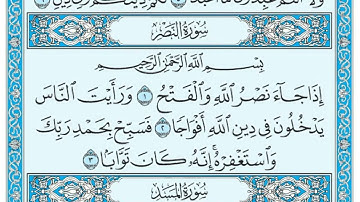 وَلَآ أَنتُمْ عَٰبِدُونَ مَآ أَعْبُدُ ٥ لَكُمْ دِينُكُمْ وَلِيَ دِينِ ٦
سُورَةُ النَّصْرِ
بِسْمِ ٱللَّهِ ٱلرَّحْمَٰنِ ٱلرَّحِيمِ
إِذَا جَآءَ نَصْرُ ٱللَّهِ وَٱلْفَتْحُ ١ وَرَأَيْتَ ٱلنَّاسَ
يَدْخُلُونَ فِي دِينِ ٱللَّهِ أَفْوَاجًا ٢ فَسَبِّحْ بِحَمْدِ رَبِّكَ
وَٱسْتَغْفِرْهُ إِنَّهُۥ كَانَ تَوَّابًۢا ٣
سُورَةُ المَسَدِ